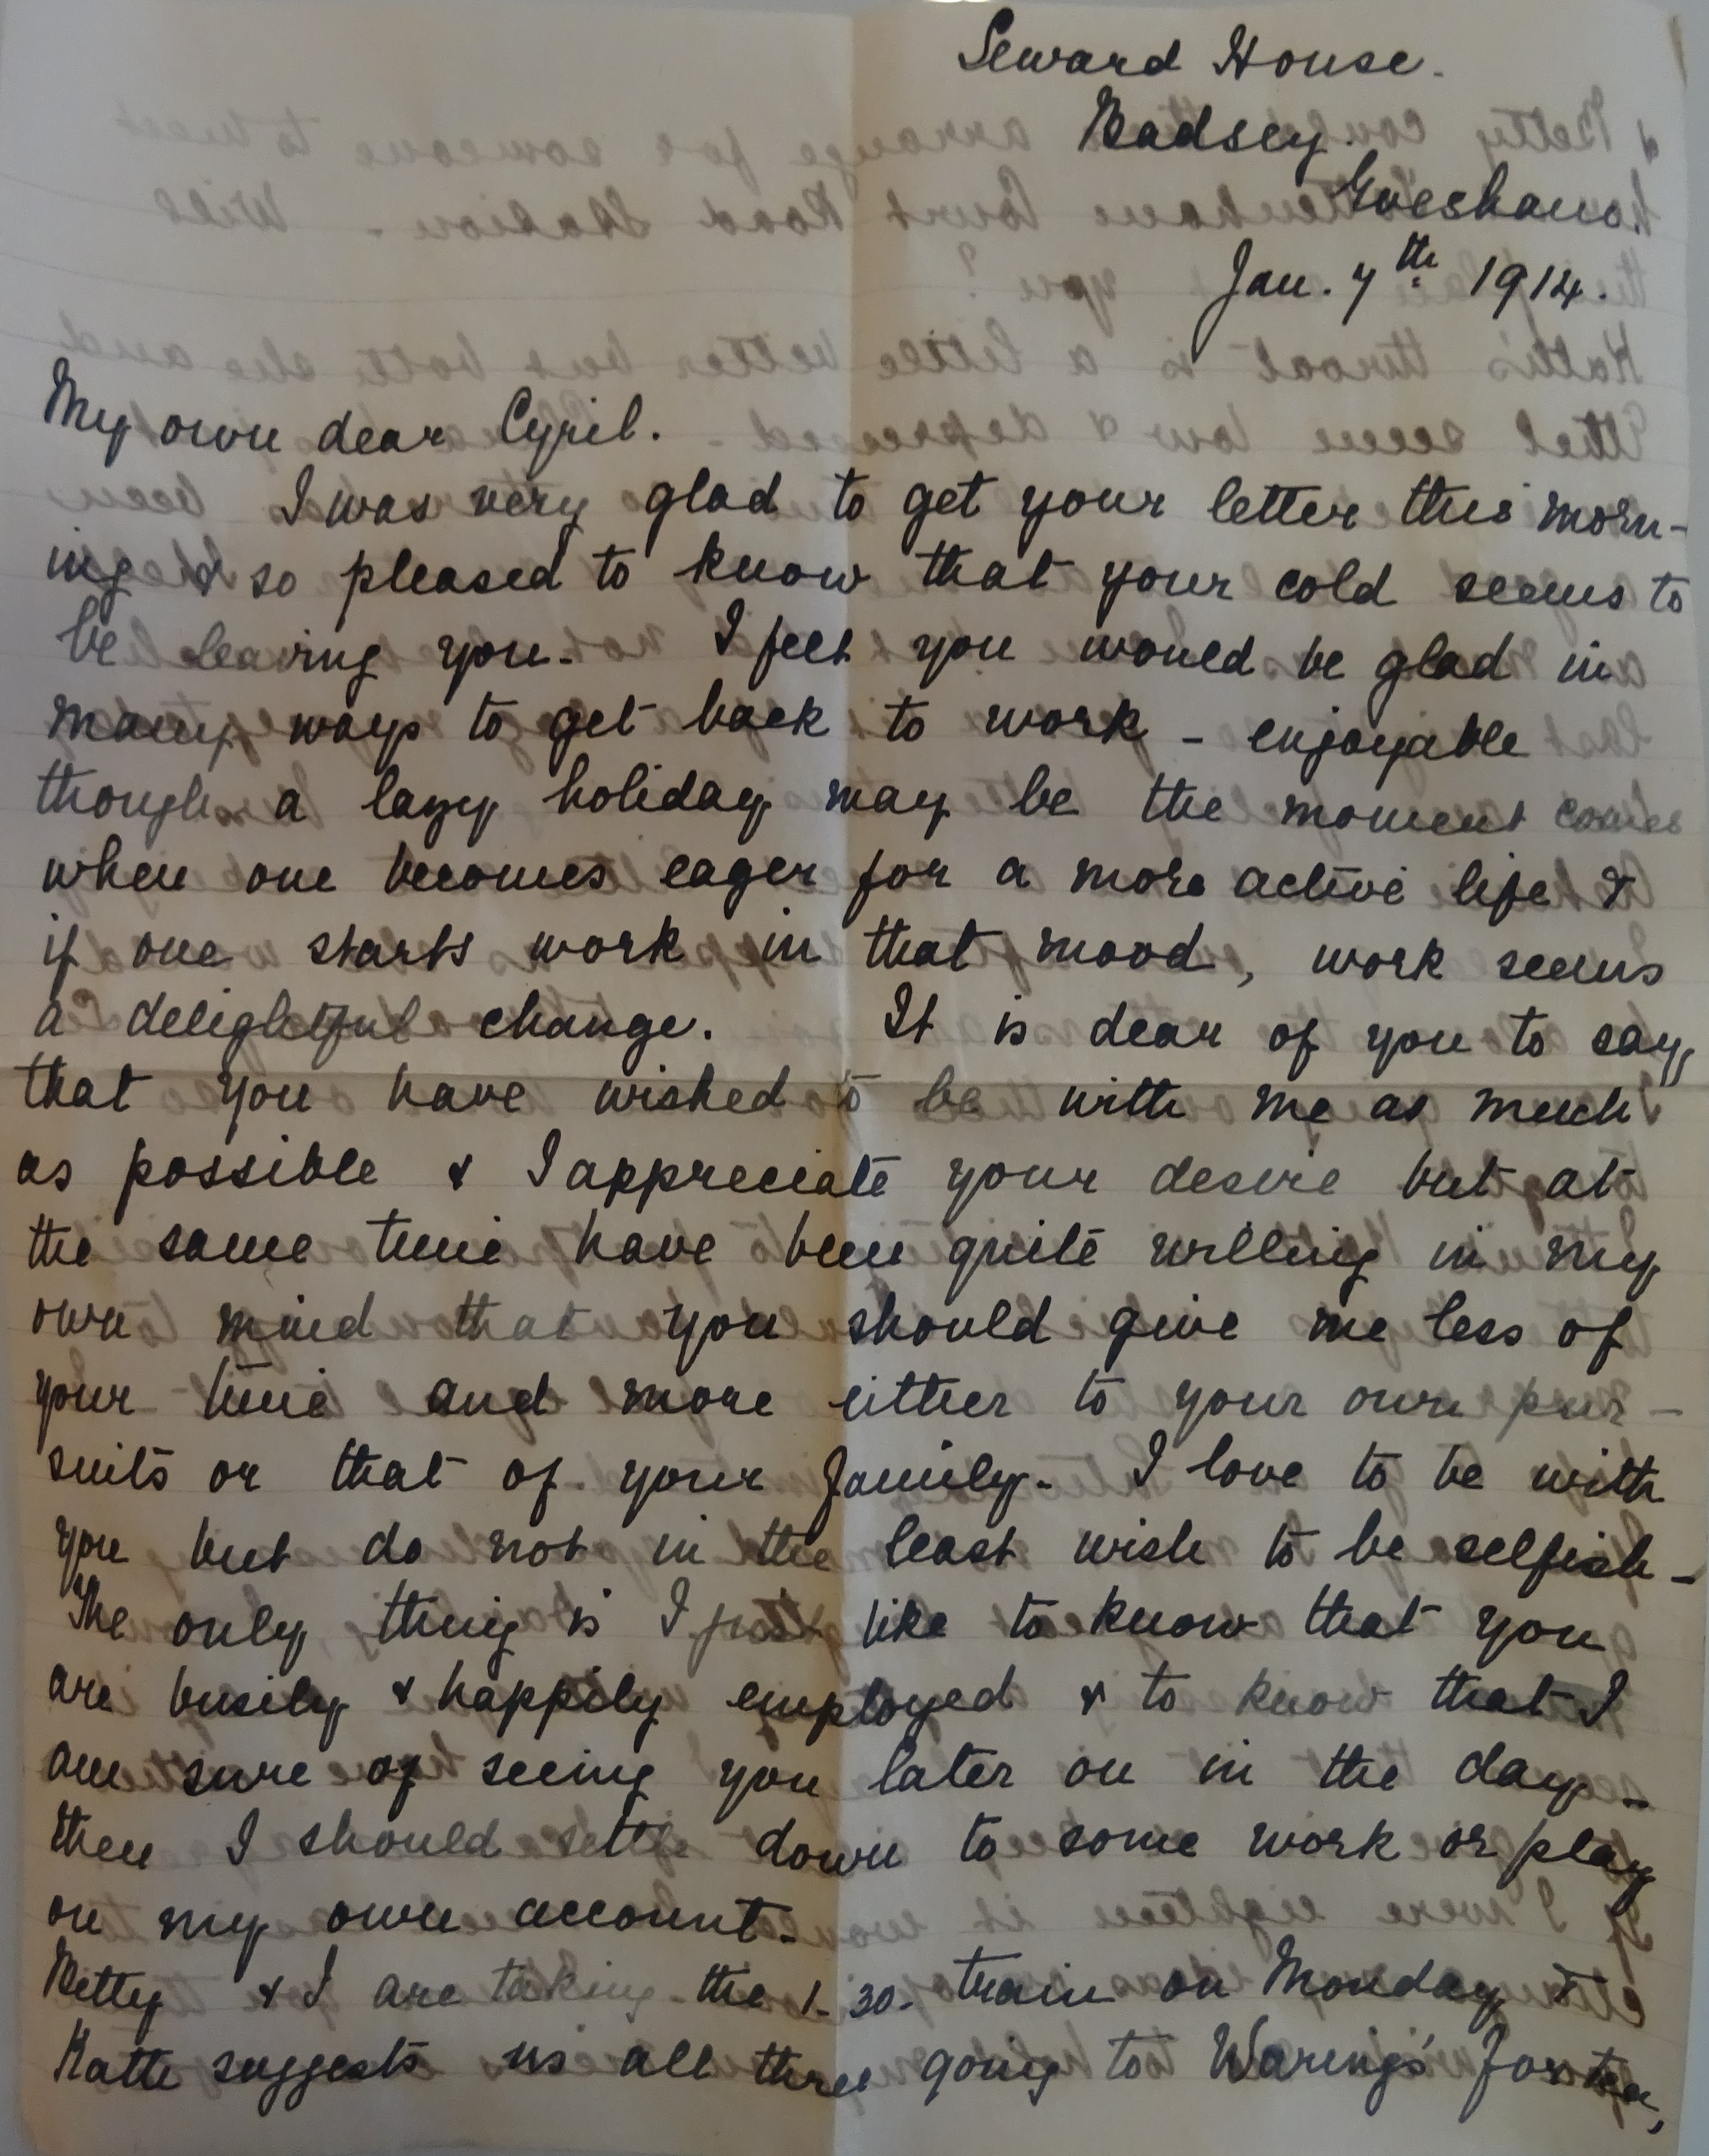 Seward House.
Badsey.
Evesham.
Jan. 7th 1914.
My own dear Cyril.
I was very glad to get your letter this morn-
ing & so pleased to know that your cold seems to
be leaving you. I felt you would be glad in
many ways to get back to work - enjoyable
though a lazy holiday may be the moment comes
when one becomes eager for a more active life &
if one starts work in that mood, work seems
a delightful change. It is dear of you to say
that you have wished to be with me as much
as possible & I appreciate your desire but at
the same time have been quite willing in my
own mind that you should give me less of
your time and more either to your own pur-
suits or that of your family. I love to be with
you but do not in the least wish to be selfish -
The only thing is I just like to know that you
are busily & happily employed & to know that I
am sure of seeing you later on in the day -
then I should settle down to some work or play
on my own account.
Betty & I are taking the 1-30. train on Monday &
Katie suggests us all three going to Waring's for tea,